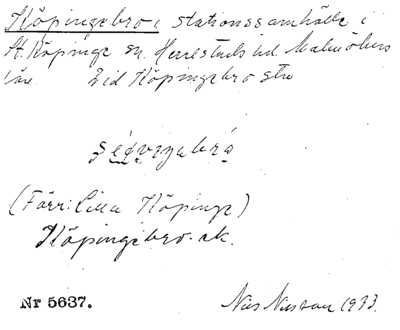 Köpingebro, stationssamhälle i
St. Köpinge sn. Herrestads hd Malmöhus
län. Vid Köpingebro stn
(Förr: Lilla Köpinge)
Köpingebro ek.
Nr 5637.
Nils Nilsson 1933.